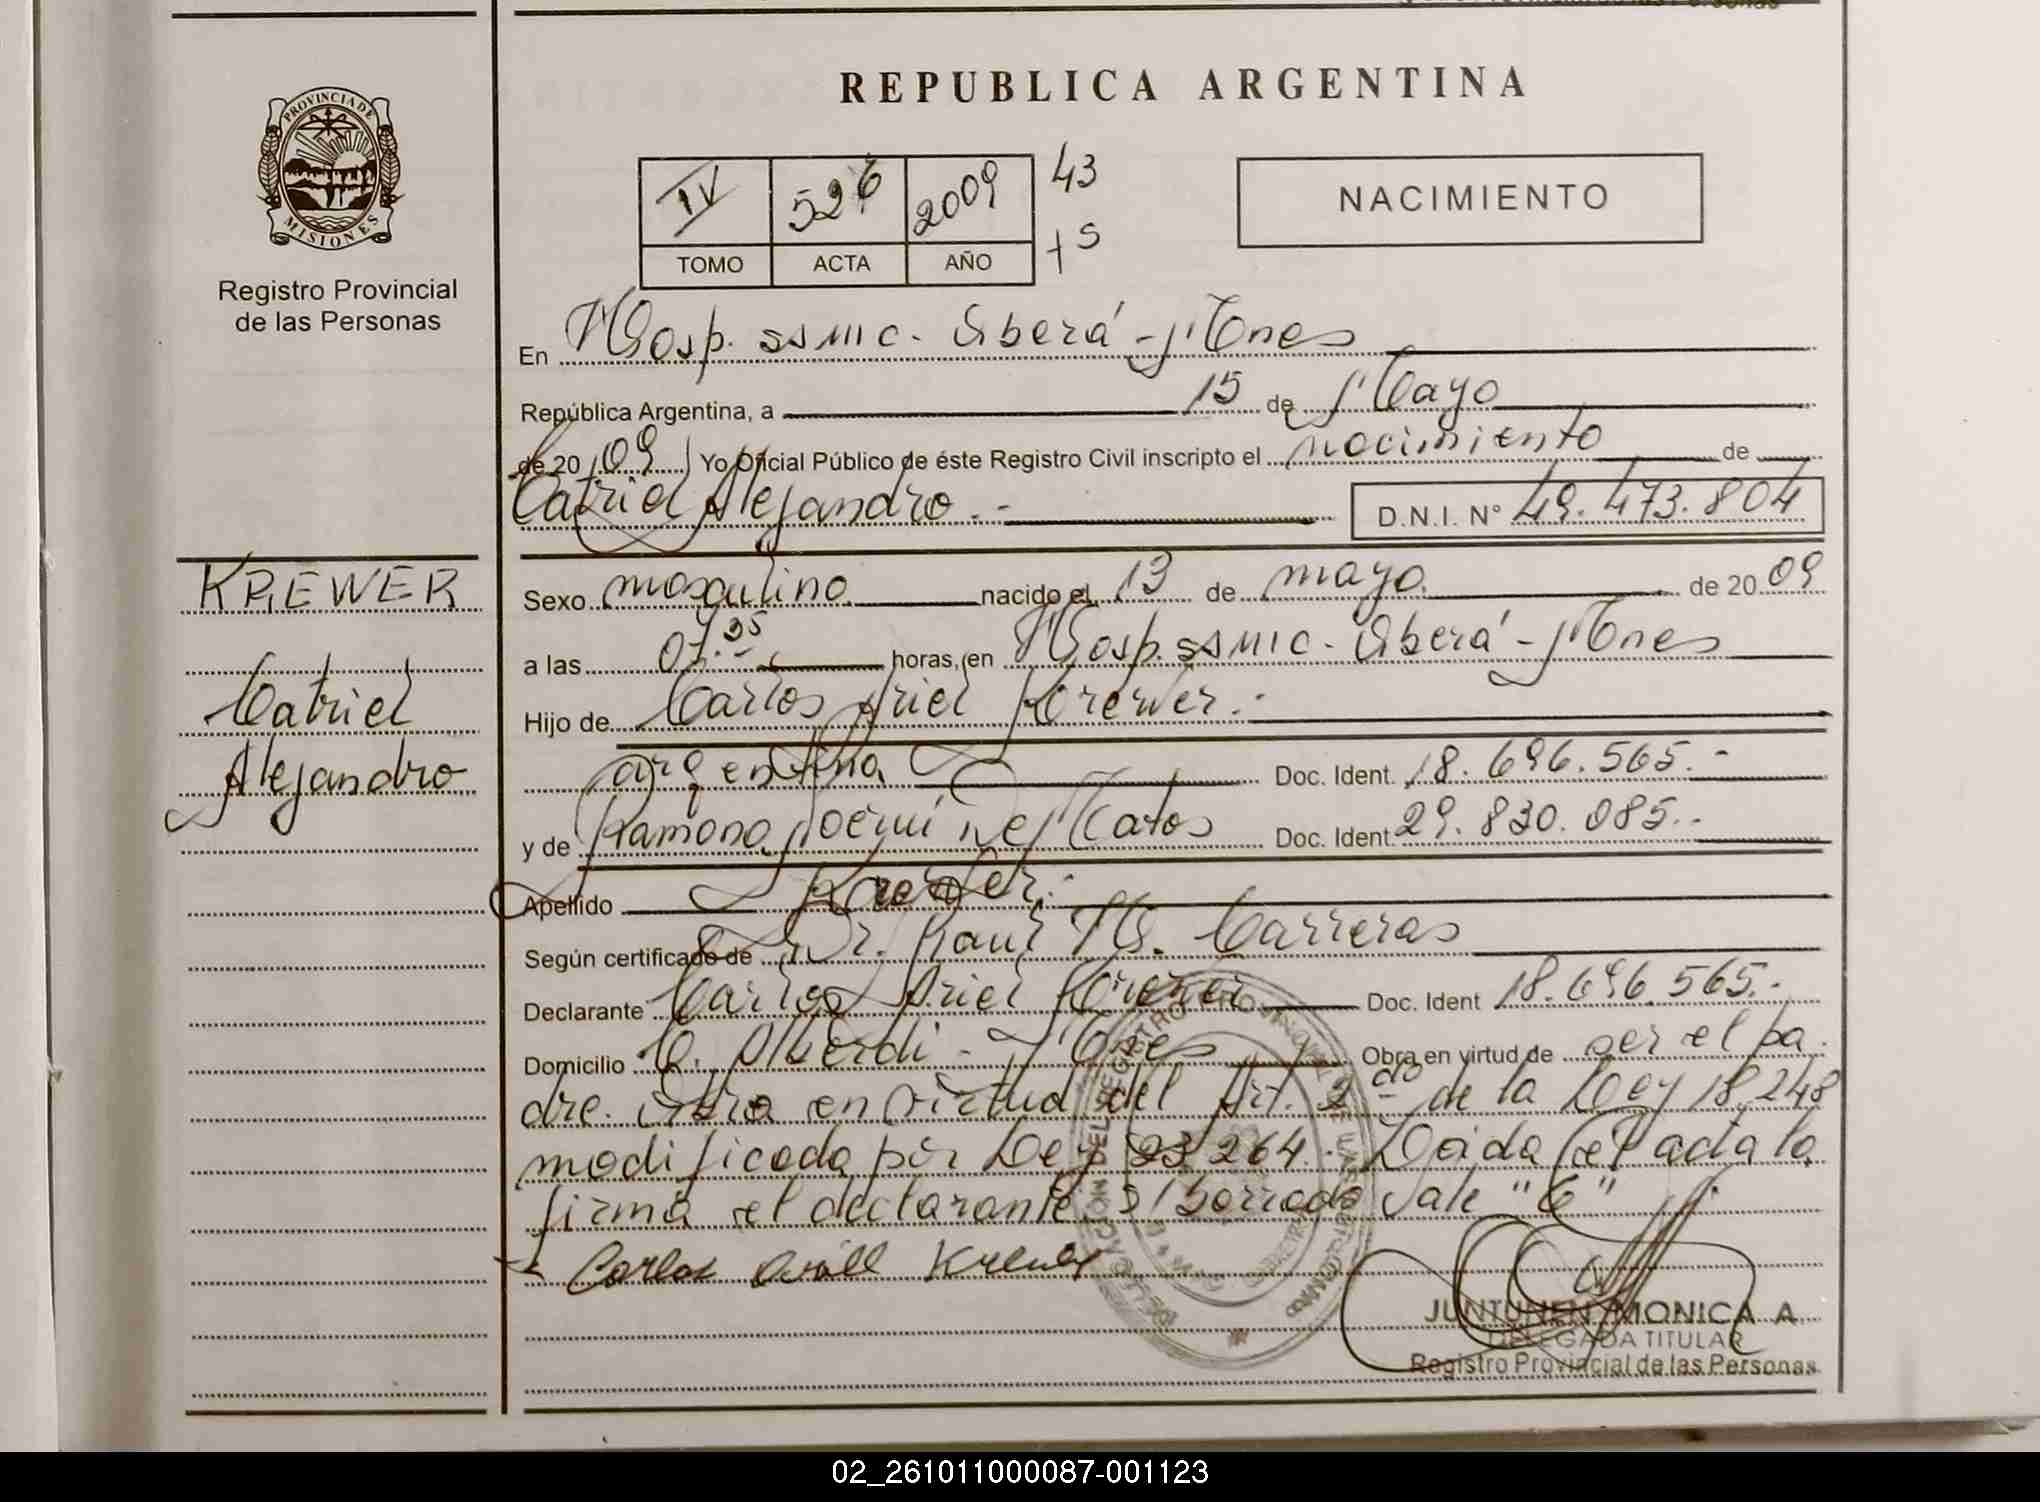 REPUBLICA ARGENTINA
PROVINCIA DE
MISIONES
Registro Provincial
de las Personas
IV 526 2009 43
TOMO ACTA AÑO +5
NACIMIENTO
En Hosp. SSMIC. Oberá - Mnes
República Argentina, a 15 de Mayo
de 20 09 Yo Oficial Público de éste Registro Civil inscripto el nacimiento de
Catriel Alejandro.- D.N.I. N° 49.473.804
KREWER
Catriel
Alejandro
Sexo masculino nacido el 13 de mayo de 20 09
a las 07.35 horas, en Hosp. SSMIC - Oberá - Mnes
Hijo de Carlos Ariel Krewer.-
argentina Doc. Ident. 18.696.565.-
y de Ramona Noemí De Matos Doc. Ident. 29.830.085.-
Apellido Krewer.-
Según certificado de Dr. Raul H. Carreras
Declarante Carlos Ariel Krewer Doc. Ident 18.696.565.-
Domicilio C. Alberdi - Mnes Obra en virtud de ser el pa
dre. Obra en virtud del Art. 2do de la Ley 18.248
modificada por Ley 23264.- Leida el acta la
firma el declarante S/ borrado vale "6"
Carlos Ariel Krewer
JUNTUNEN MONICA A
DELEGADA TITULAR
Registro Provincial de las Personas
02_261011000087-001123